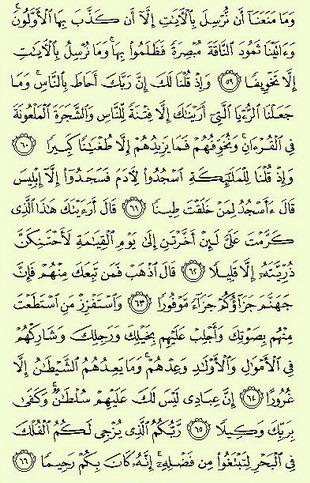 وَمَا مَنَعَنَآ أَن نُّرْسِلَ بِٱلْءَايَٰتِ إِلَّآ أَن كَذَّبَ بِهَا ٱلْأَوَّلُونَ ۚ
وَءَاتَيْنَا ثَمُودَ ٱلنَّاقَةَ مُبْصِرَةً فَظَلَمُوا۟ بِهَا ۚ وَمَا نُرْسِلُ بِٱلْءَايَٰتِ
إِلَّا تَخْوِيفًا ۝٥٩ وَإِذْ قُلْنَا لَكَ إِنَّ رَبَّكَ أَحَاطَ بِٱلنَّاسِ ۚ وَمَا
جَعَلْنَا ٱلرُّءْيَا ٱلَّتِىٓ أَرَيْنَٰكَ إِلَّا فِتْنَةً لِّلنَّاسِ وَٱلشَّجَرَةَ ٱلْمَلْعُونَةَ
فِى ٱلْقُرْءَانِ ۚ وَنُخَوِّفُهُمْ فَمَا يَزِيدُهُمْ إِلَّا طُغْيَٰنًا كَبِيرًا ۝٦٠
وَإِذْ قُلْنَا لِلْمَلَٰٓئِكَةِ ٱسْجُدُوا۟ لِءَادَمَ فَسَجَدُوٓا۟ إِلَّآ إِبْلِيسَ
قَالَ ءَأَسْجُدُ لِمَنْ خَلَقْتَ طِينًا ۝٦١ قَالَ أَرَءَيْتَكَ هَٰذَا ٱلَّذِى
كَرَّمْتَ عَلَىَّ لَئِنْ أَخَّرْتَنِ إِلَىٰ يَوْمِ ٱلْقِيَٰمَةِ لَأَحْتَنِكَنَّ
ذُرِّيَّتَهُۥٓ إِلَّا قَلِيلًا ۝٦٢ قَالَ ٱذْهَبْ فَمَن تَبِعَكَ مِنْهُمْ فَإِنَّ
جَهَنَّمَ جَزَآؤُكُمْ جَزَآءً مَّوْفُورًا ۝٦٣ وَٱسْتَفْزِزْ مَنِ ٱسْتَطَعْتَ
مِنْهُم بِصَوْتِكَ وَأَجْلِبْ عَلَيْهِم بِخَيْلِكَ وَرَجِلِكَ وَشَارِكْهُمْ
فِى ٱلْأَمْوَٰلِ وَٱلْأَوْلَٰدِ وَعِدْهُمْ ۚ وَمَا يَعِدُهُمُ ٱلشَّيْطَٰنُ إِلَّا
غُرُورًا ۝٦٤ إِنَّ عِبَادِى لَيْسَ لَكَ عَلَيْهِمْ سُلْطَٰنٌ ۚ وَكَفَىٰ
بِرَبِّكَ وَكِيلًا ۝٦٥ رَّبُّكُمُ ٱلَّذِى يُزْجِى لَكُمُ ٱلْفُلْكَ
فِى ٱلْبَحْرِ لِتَبْتَغُوا۟ مِن فَضْلِهِۦٓ ۚ إِنَّهُۥ كَانَ بِكُمْ رَحِيمًا ۝٦٦